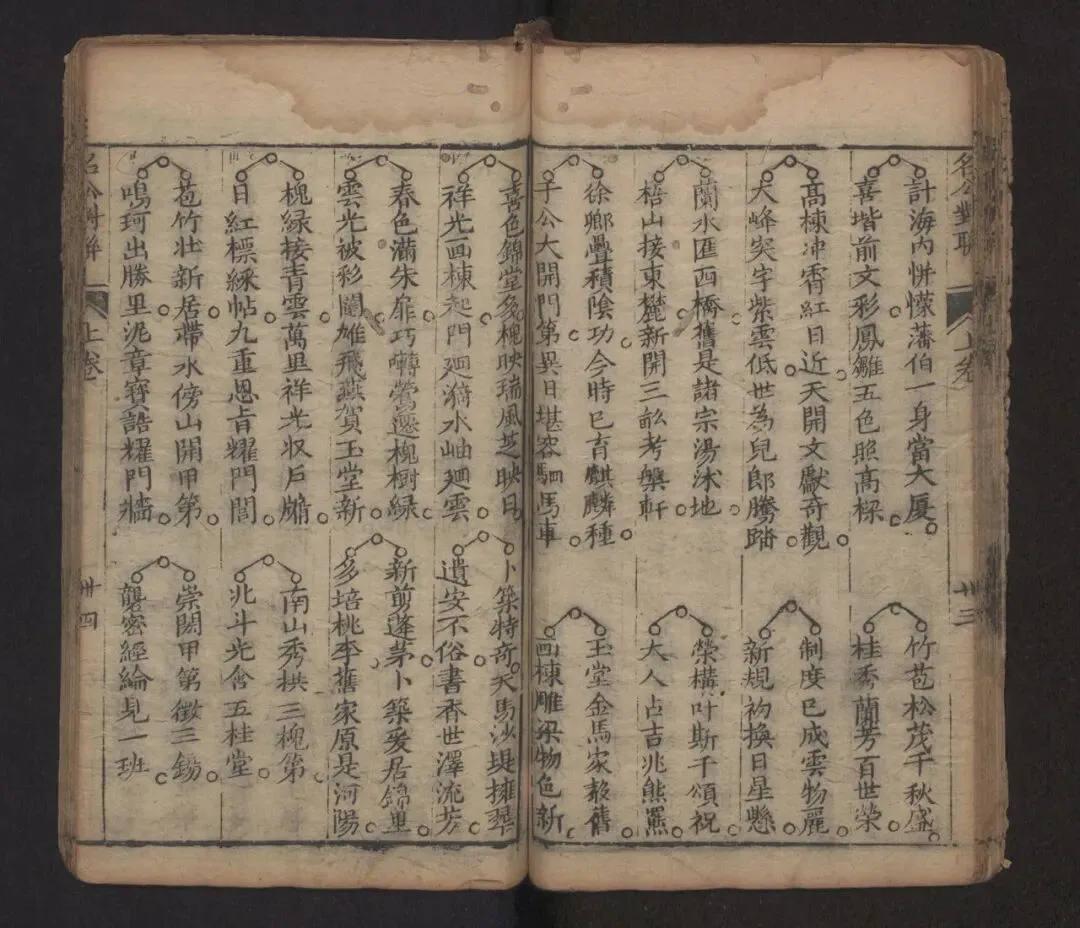 名公對聯
上卷
卅三
計海內帡幪藩伯一身當大厦
喜堦前文彩鳳雛五色照高樑
高棟冲霄紅日近天開文獻奇觀
犬峰突字紫雲低世為兒郎騰踏
蘭水匯西橋舊是諸宗湯沐地
梧山接東麓新開三畝考槃軒
徐卿疊積陰功今時已育麒麟種
于公大開門第異日堪容駟馬車
竹苞松茂千秋盛
桂秀蘭芳百世榮
制度已成雲物麗
新規初換日星懸
榮構叶斯干頌祝
大人占吉兆熊羆
玉堂金馬家聲舊
画棟雕梁物色新
喜色錦堂多槐映瑞風芝映日
祥光画棟起門廻漪水岫廻雲
春色滿朱扉巧囀鶯遷槐樹緑
雲光被彩閣雄飛燕賀玉堂新
槐緑接青雲萬里祥光収戶牖
日紅標綵帖九重恩旨耀門閭
苞竹壯新居帶水傍山開甲第
鳴珂出勝里泥章寶誥耀門牆
卜築特奇天馬沙堤擁翠
遺安不俗書香世澤流芳
新剪蓬茅卜築爰居錦里
多培桃李舊家原是河陽
南山秀拱三槐第
兆斗光含五桂堂
崇閎甲第徵三錫
黼密經綸見一班
名公對聯
上卷
卅四